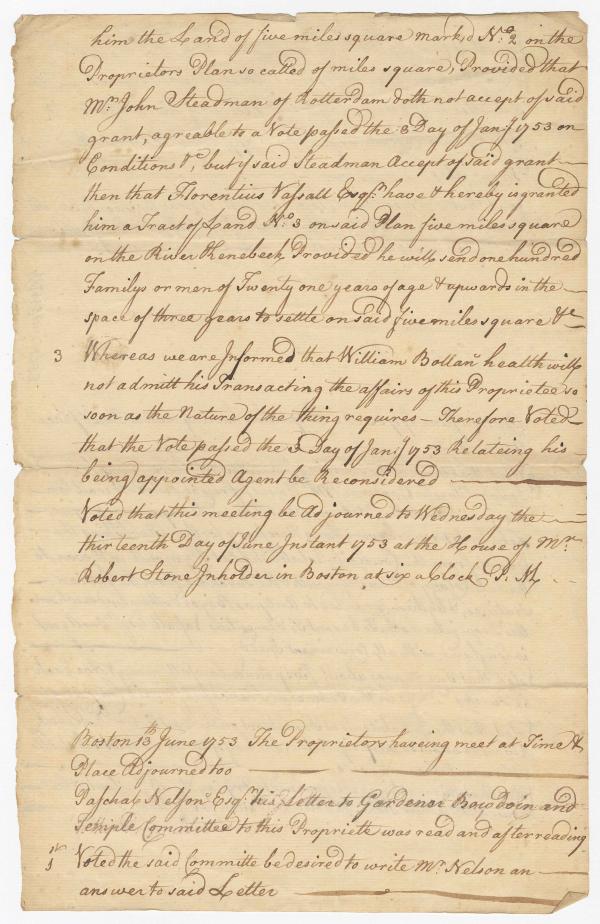 him the Land of five miles square mark,d No. 2 on the
Proprietors Plan so called of miles square, Provided that
Mr. John Steadman of Rotterdam doth not accept of said
grant, agreable to a Vote passed the 3 Day of Jany. 1753 on
Conditions &c, but if said Steadman Accept of said grant
then that Florentius Vassall Esqr. have & hereby is granted
him a Tract of Land No. 3 on said Plan five miles square
on the River Kenebeck Provided he will send one hundred
Familys or men of Twenty one years of age & upwards in the
space of three years to settle on said five miles square &c
3 Whereas we are Informed that William Bollan's health will
not admitt his Transacting the affairs of this Proprietee so
soon as the Nature of the thing requires - Therefore Voted
that the Vote passed the 3 Day of Jany. 1753 Relateing his
being appointed Agent be Reconsidered
Voted that this meeting be Adjourned to Wednesday the
thirteenth Day of June Instant 1753 at the House of Mr.
Robert Stone Inholder in Boston at six a Clock P. M.
Boston 13th June 1753 The Proprietors haveing meet at Time &
Place Adjourned too
Paschal Nelson Esqr. his Letter to Gardener Bowdoin and
Temple Committee to this Propriete was read and after reading
Voted the said Committe be desired to write Mr. Nelson an
answer to said Letter